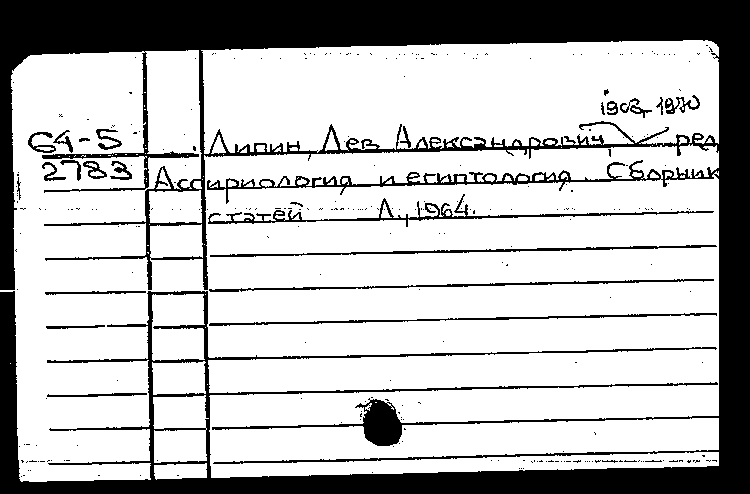 1908-1970
64-5 Липин, Лев Александрович, ред.
2783 Ассириология и египтология. Сборник
статей Л., 1964.